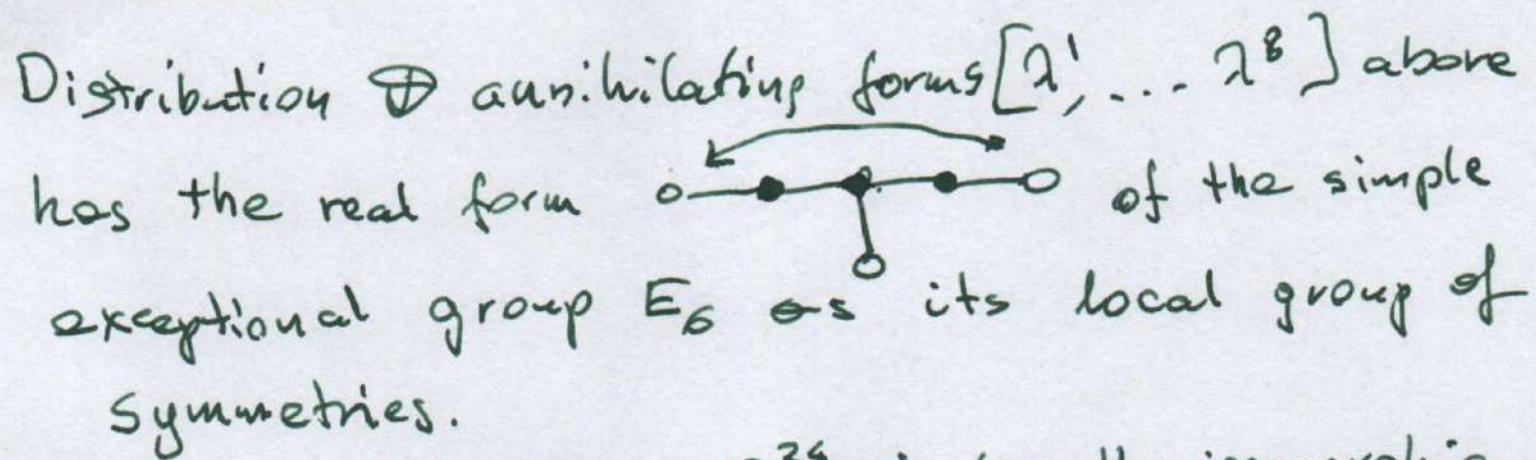 Distribution ⊕ annihilating forms [λ¹, ... λ⁸] above
has the real form of the simple
exceptional group E₆ as its local group of
symmetries.